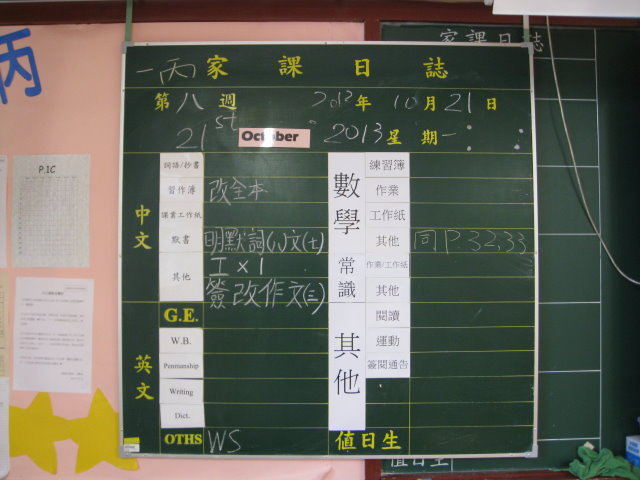 丙
家課日誌
一丙 家課日誌
第八週 2013年 10月21日
21st October 2013 星期一
P.1C
中文
詞語/抄書
習作簿 改全本
課業工作紙
默書 明默詞(八)文(七)
其他 工x1
簽改作文(三)
英文
G.E.
W.B.
Penmanship
Writing
Dict.
OTHS WS
數學
練習簿
作業
工作紙
其他 同P.32,33
常識
作業/工作紙
其他
其他
閱讀
運動
簽閱通告
值日生
值日生